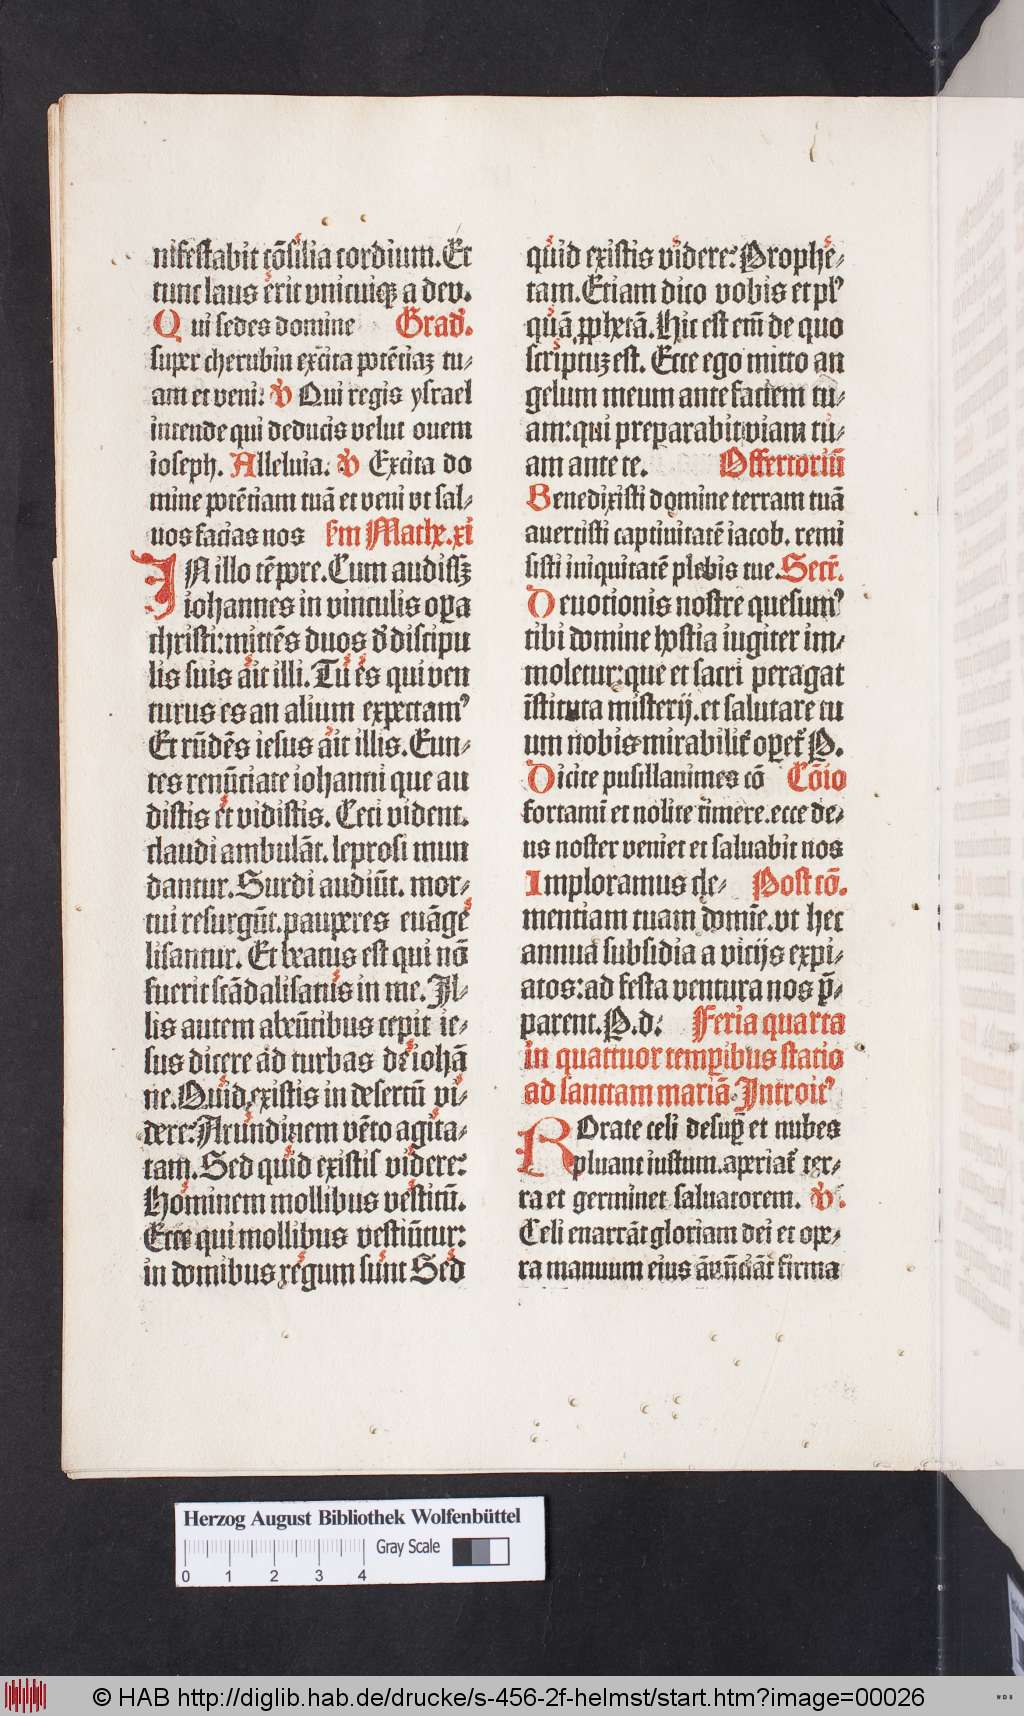 nifestabit cōsilia cordium. Et
tunc laus erit vnicuiqꝫ a deo.
Qui sedes domine Grad̕.
super cherubin excita potētiaꝫ tu⸗
am et veni. ℣ Qui regis ysrael
intende qui deducis velut ouem
ioseph. Alleluia. ℣ Excita do
mine potētiam tuā et veni vt sal⸗
uos facias nos sm̄ Mathe. xi
IN illo tēpore. Cum audissꝫ
iohannes in vinculis opa
christi: mittēs duos d̕ discipu
lis suis ait illi. Tu es qui ven
turus es an alium expectamꝰ
Et rn̄dēs iesus ait illis. Eun⸗
tes renūciate iohanni que au
distis et vidistis. Ceci vident.
claudi ambulāt. leprosi mun
dantur. Surdi audiūt. mor⸗
tui resurgūt. pauperes euāge
lisantur. Et beatus est qui nō
fuerit scādalisatus in me. Il⸗
lis autem abeūtibus cepit ie⸗
sus dicere ad turbas de iohā
ne. Quid existis in desertū vi⸗
dere? Arundinem vēto agita⸗
tam. Sed quid existis videre?
Hominem mollibus vestitū.
Ecce qui mollibus vestiūtur:
in domibus regum sunt Sed
quid existis videre? Prophe⸗
tam. Etiam dico vobis et plꝰ
quā ꝓphetā. Hic est em̄ de quo
scriptuꝫ est. Ecce ego mitto an
gelum meum ante faciem tu⸗
am: qui preparabit viam tu⸗
am ante te. Offertoriū
Benedixisti domine terram tuā
auertisti captiuitatē iacob. remi
sisti iniquitatē plebis tue. Secr̄.
Deuotionis nostre quesumꝰ
tibi domine hostia iugiter im⸗
moletur: que et sacri peragat
īstituta misterij. et salutare tu
um nobis mirabilit̕ oꝑet̕ P.
Dicite pusillanimes cō Cōio
fortami̅ et nolite timere. ecce de⸗
us noster veniet et saluabit nos
Imploramus cle⸗ Post cō.
mentiam tuam domīe. vt hec
annua subsidia a vicijs expi⸗
atos: ad festa ventura nos p̄⸗
parent. P. d. Feria quarta
in quattuor temꝑibus statio
ad sanctam mariā. Introitꝰ
ROrate celi desuꝑ et nubes
pluant iustum. aperiat̕ ter⸗
ra et germinet saluatorem. ℣.
Celi enarrāt gloriam dei et ope⸗
ra manuum eius ānūciāt firma
Herzog August Bibliothek Wolfenbüttel
Gray Scale
0 1 2 3 4
© HAB http://diglib.hab.de/drucke/s-456-2f-helmst/start.htm?image=00026